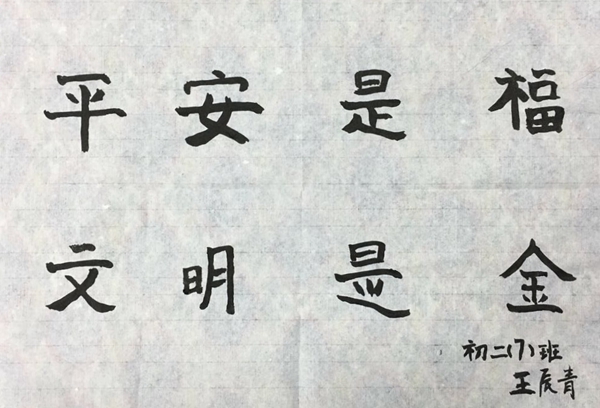 平安是福
文明是金
初二(7)班
王辰青